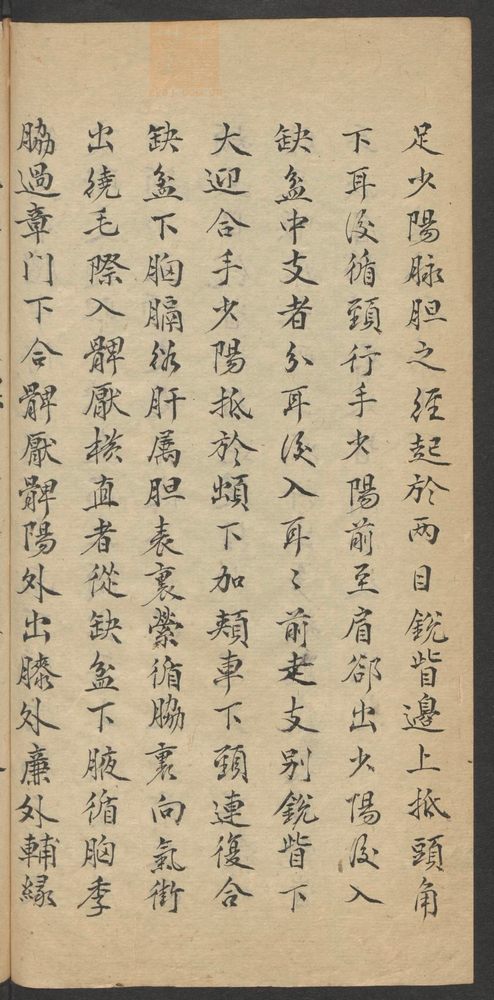 足少陽脉胆之經起於兩目銳眥邊上抵頭角
下耳後循頸行手少陽前至肩郤出少陽後入
缺盆中支者分耳後入耳〻前走支别銳眥下
大迎合手少陽抵於䪼下加頰車下頸連復合
缺盆下胸膈絡肝属胆表裏縈循脇裏向氣街
出繞毛際入髀厭橫直者從缺盆下腋循胸季
脇過章门下合髀厭髀陽外出膝外廉外輔緣